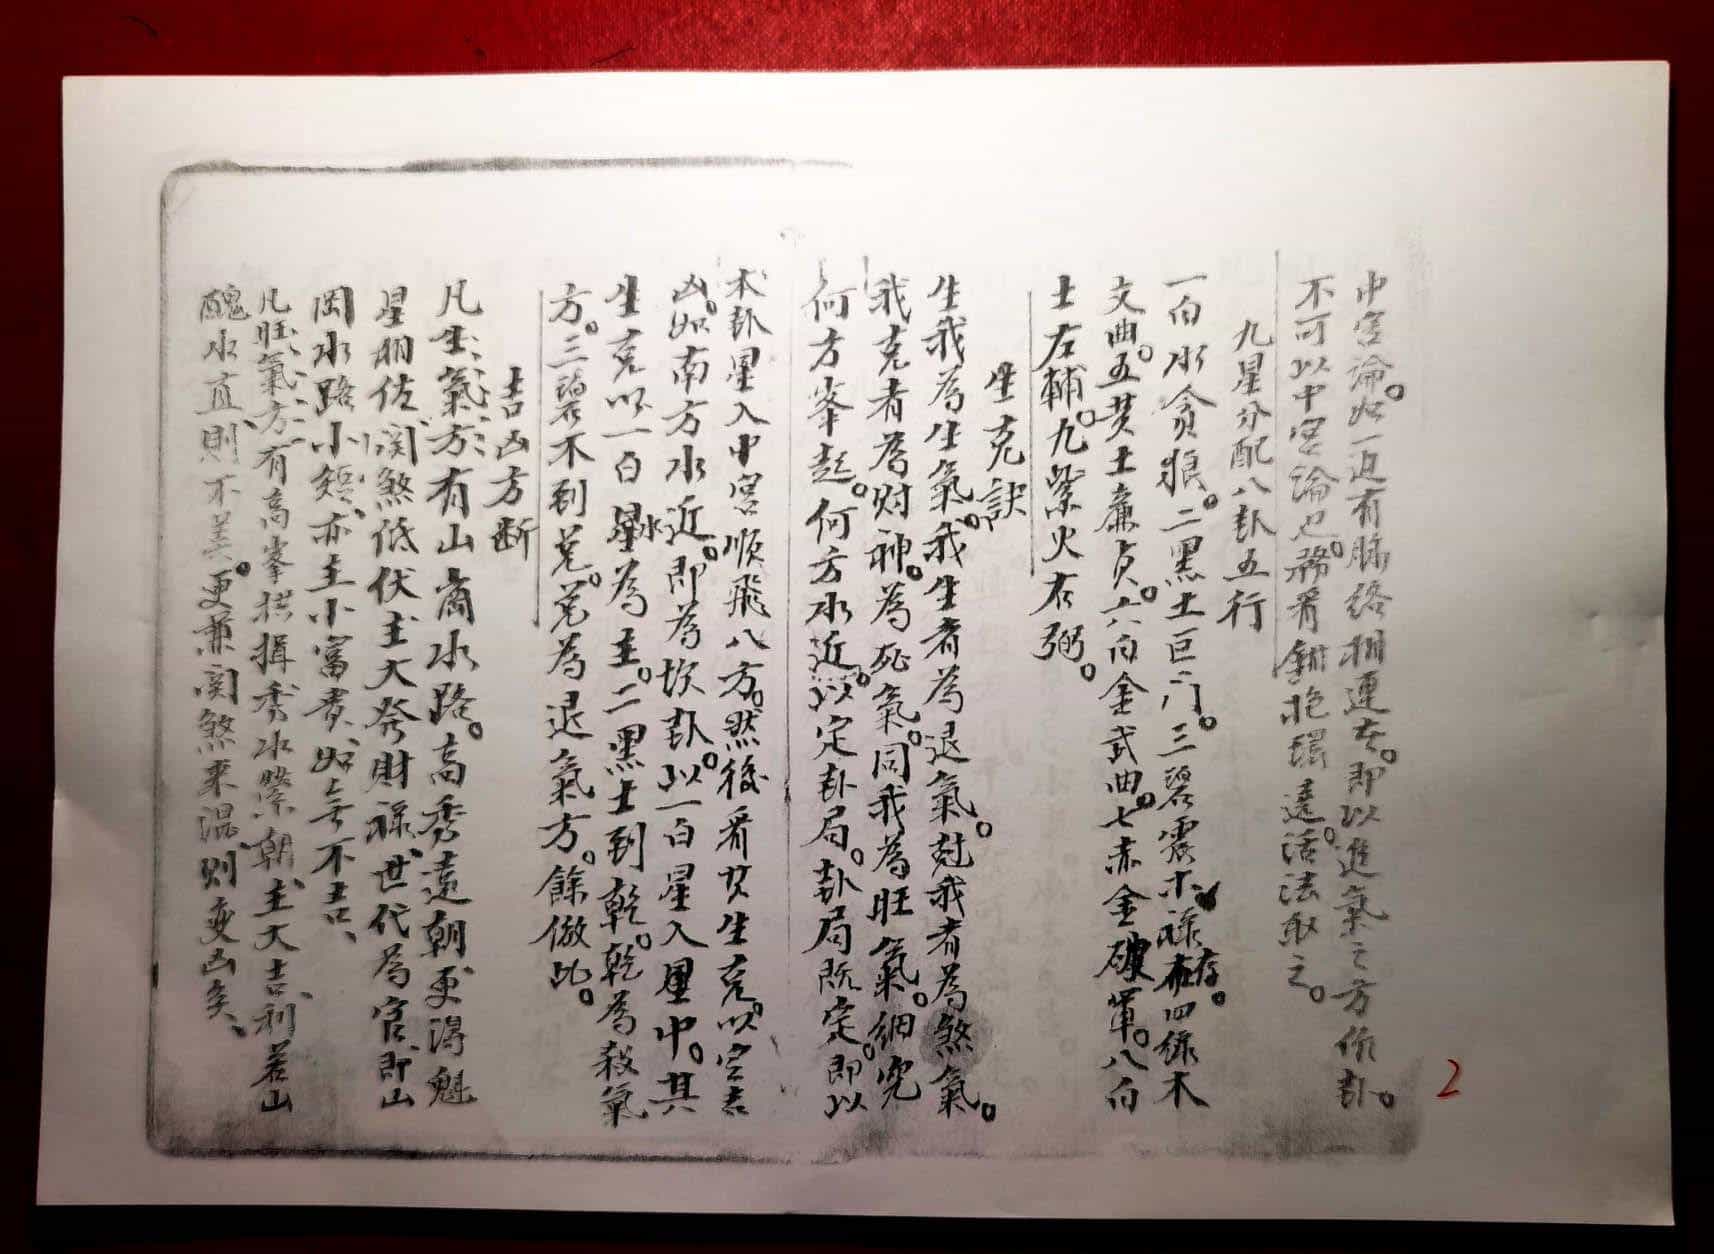 中宮論。如一边有脉络相連者。即以進氣之方作卦。
不可以中宮論也。務看鉗抱環遶。活法取之。
九星分配八卦五行
一白水貪狼。二黑土巨门。三碧震木禄存。四绿木
文曲。五黄土廉贞。六白金武曲。七赤金破軍。八白
土左輔。九紫火右弼。
生克訣
生我為生氣。我生者為退氣。尅我者為煞氣。
我克者為财神。為死氣。同我為旺氣。细究
何方峯起。何方水近。以定卦局。卦局既定。即以
本卦星入中宮順飛八方。然後看其生克。以定吉
凶。如南方水近。即為坎卦。以一白星入中。其
生克以一白水星為主。二黑土到乾。乾為殺氣
方。三碧木到兑。兑為退氣方。餘倣此。
吉凶方断
凡生氣方有山崗水路。高秀遠朝更得魁
星相佐関煞低伏主大發財禄、世代為官、即山
岡水路小短、亦主小富贵、如無不吉、
凡旺氣方有高峯拱揖秀水縈朝、主大吉利、若山
醜水直則不美。更兼関煞来混、则变凶矣、
2